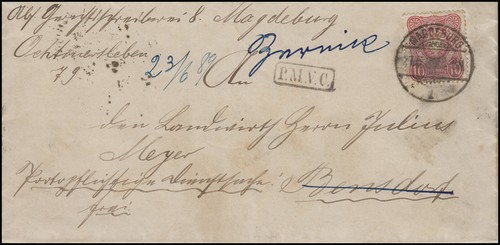 Abs. Gerichtsschreiberei 8. Magdeburg
Ochtmersleben
79
23/6 89
Bernick
An
P.M.V.C.
MAGDEBURG
10 10
den Landwirth Herrn Julius
Meyer
Portopflichtige Dienstsache. Bensdorf
frei